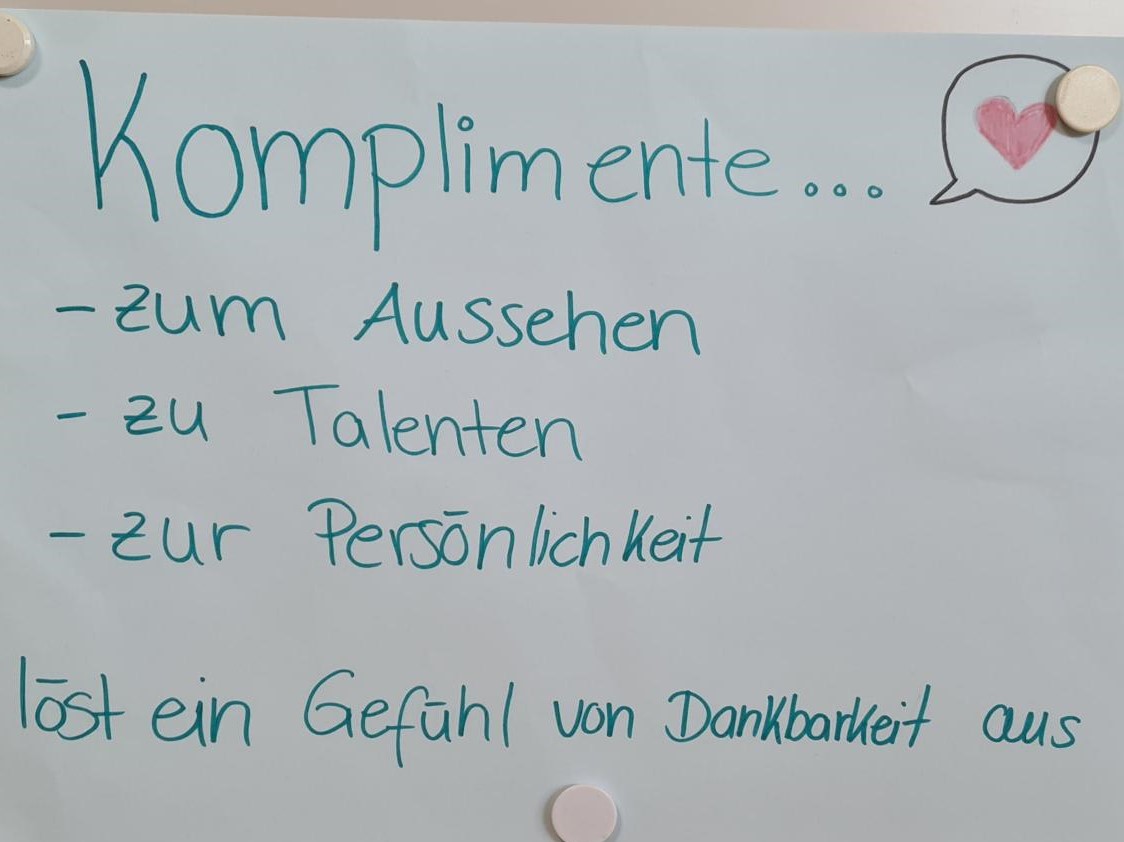 Komplimente...
- zum Aussehen
- zu Talenten
- zur Persönlichkeit
löst ein Gefühl von Dankbarkeit aus